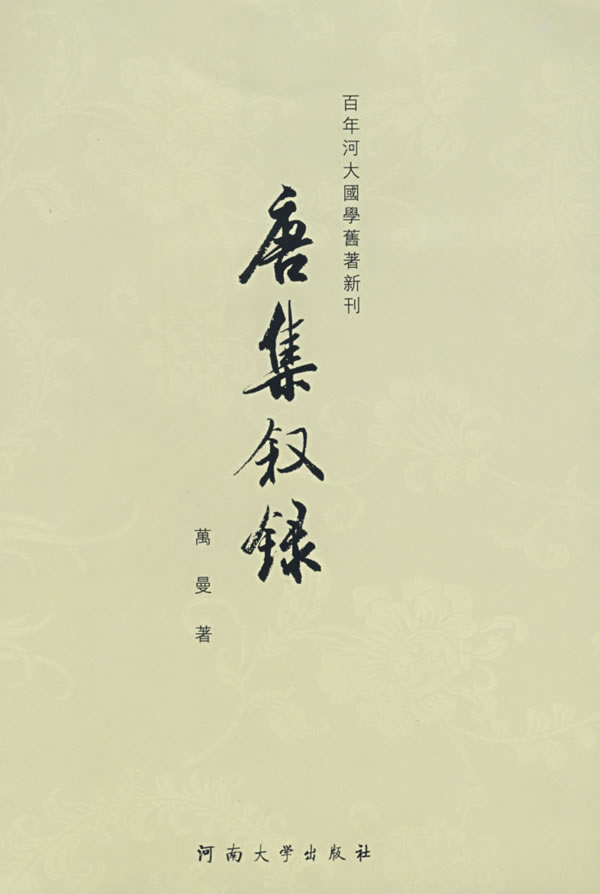 百年河大國學舊著新刊
唐集叙録
萬曼著
河南大学出版社